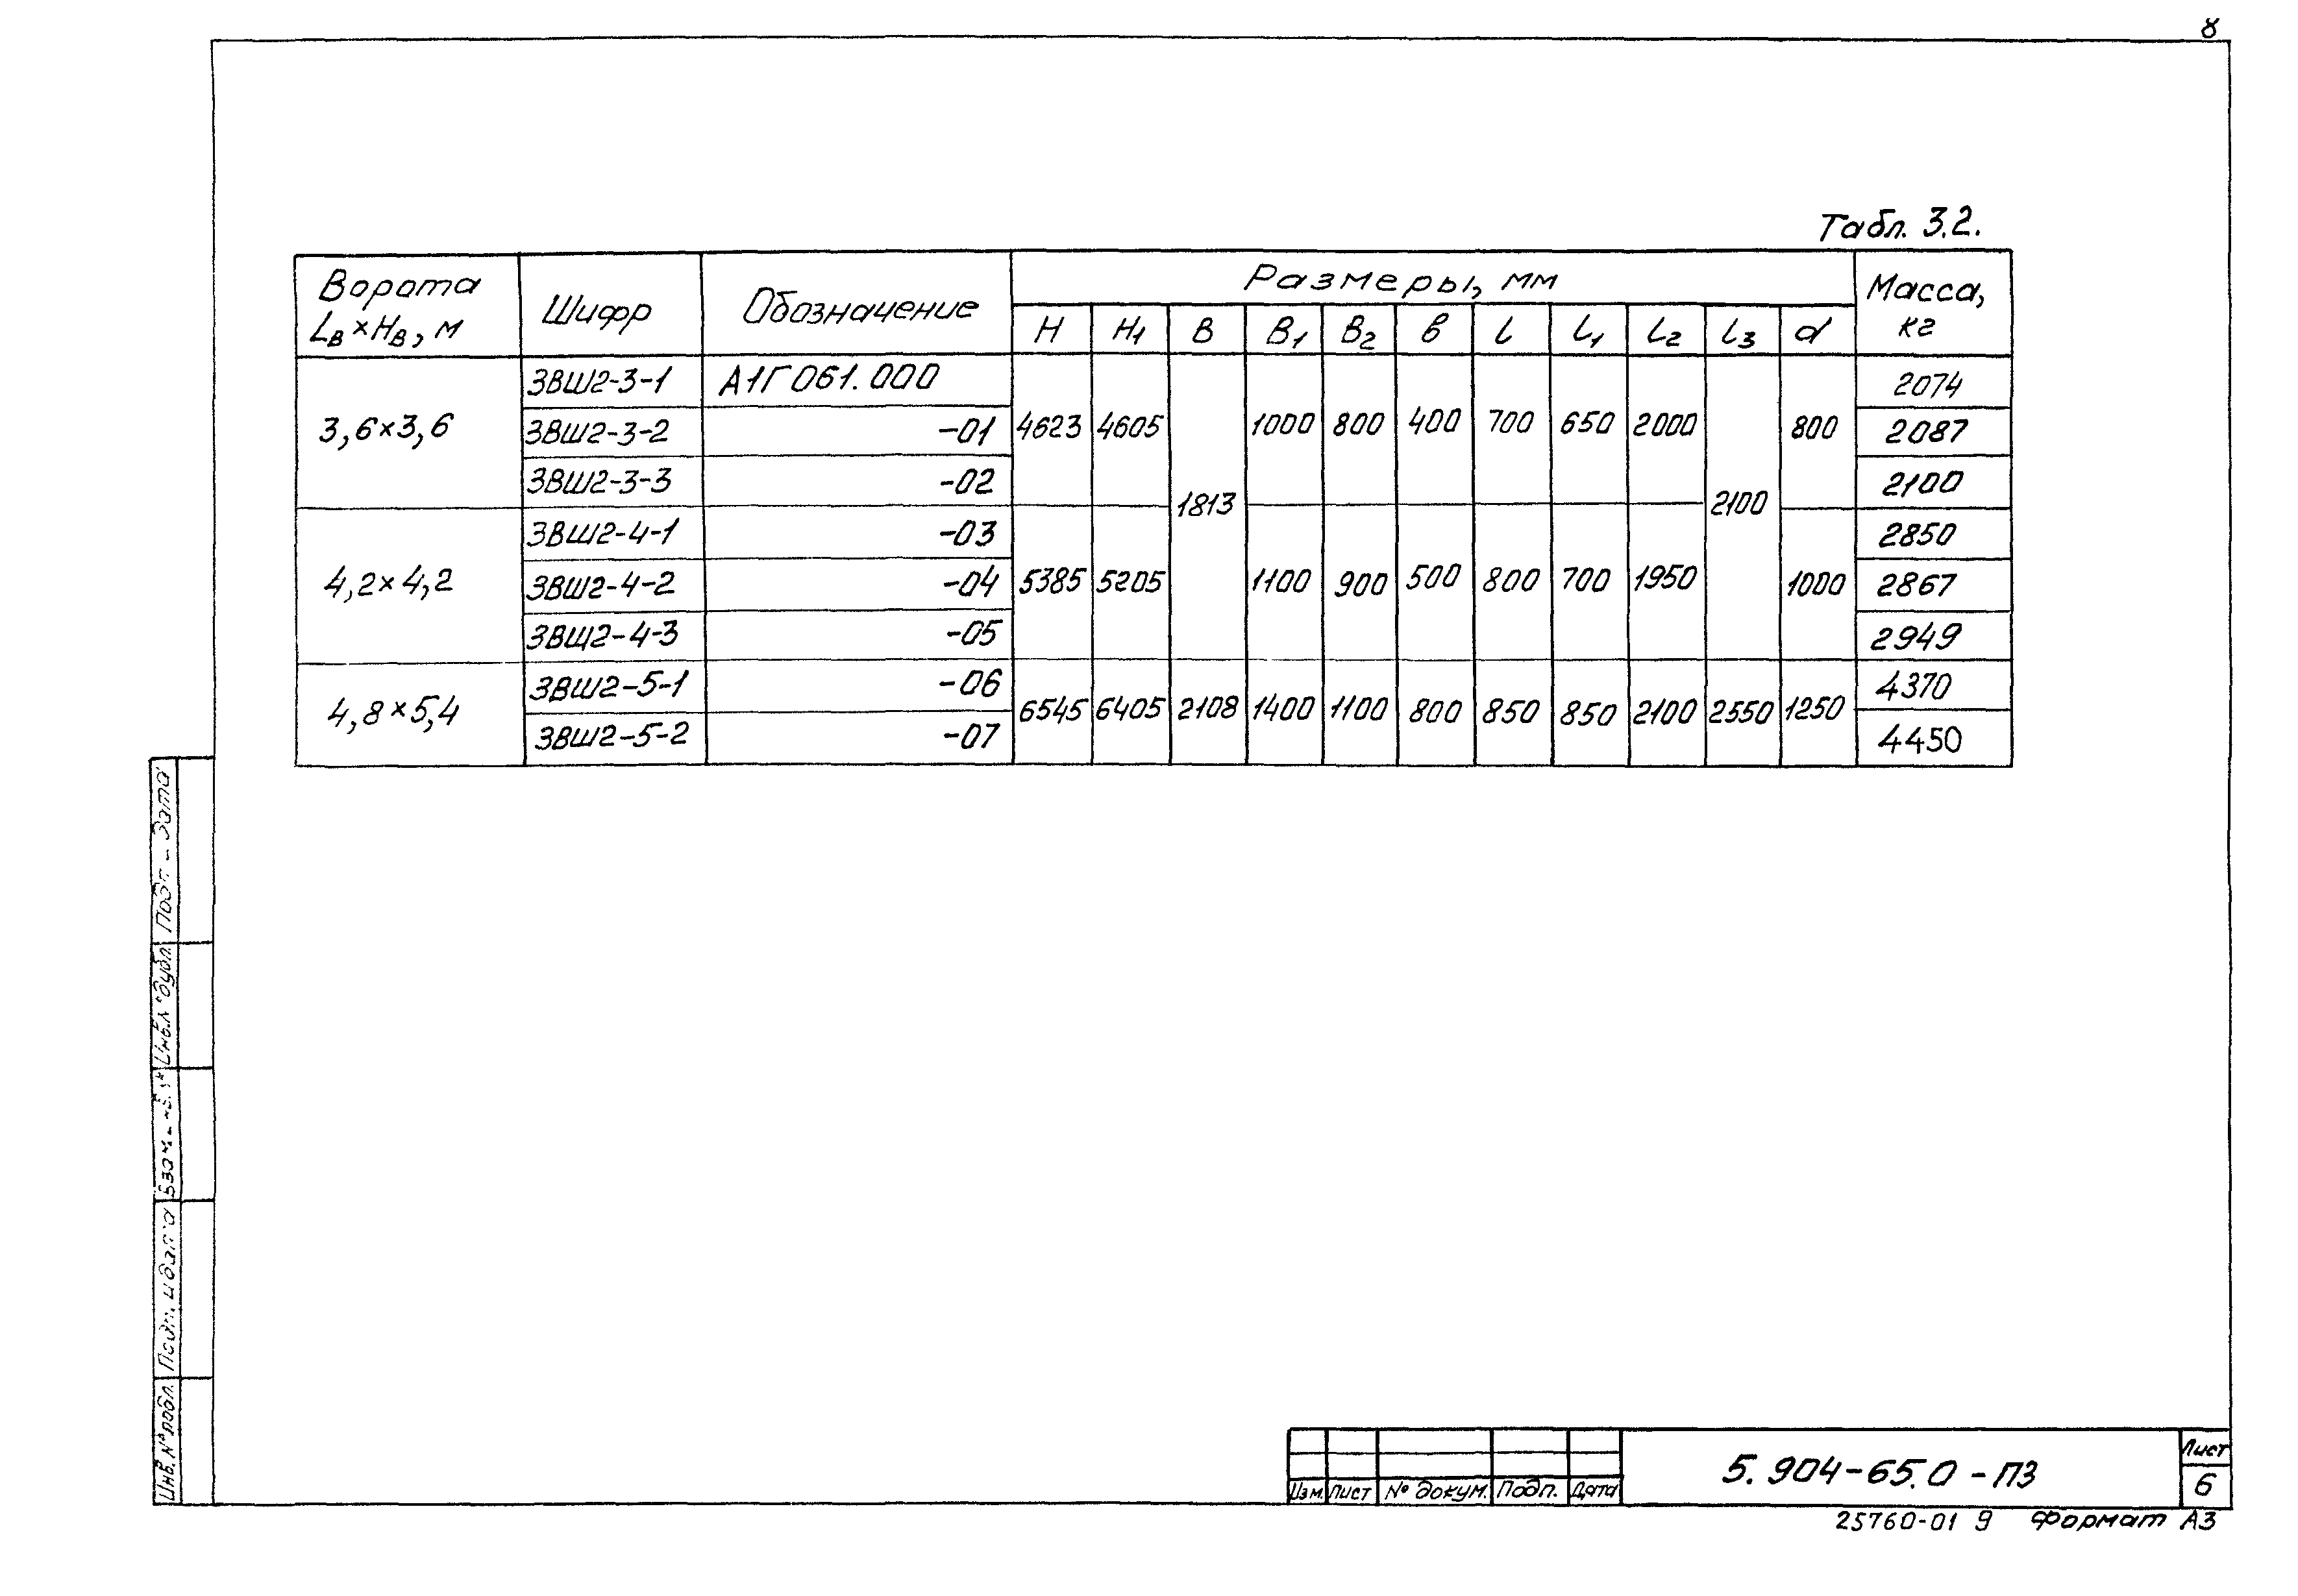 8
Табл. 3.2.
Ворота Lв×Нв, м | Шифр | Обозначение | Размеры, мм | Масса, кг
H | H1 | B | B1 | B2 | в | l | l1 | l2 | l3 | d
3,6×3,6 | ЗВШ2-3-1 | А1Г061.000 | 4623 | 4605 | 1813 | 1000 | 800 | 400 | 700 | 650 | 2000 | 2100 | 800 | 2074
ЗВШ2-3-2 | -01 | 2087
ЗВШ2-3-3 | -02 | 2100
4,2×4,2 | ЗВШ2-4-1 | -03 | 5385 | 5205 | 1100 | 900 | 500 | 800 | 700 | 1950 | 1000 | 2850
ЗВШ2-4-2 | -04 | 2867
ЗВШ2-4-3 | -05 | 2949
4,8×5,4 | ЗВШ2-5-1 | -06 | 6545 | 6405 | 2108 | 1400 | 1100 | 800 | 850 | 850 | 2100 | 2550 | 1250 | 4370
ЗВШ2-5-2 | -07 | 4450
Подп. дата
Инв.N дубл.
Взам.
Подп. и дата
Инв.№подл.
Изм. Лист № докум. Подп. Дата
5.904-65.0-ПЗ
Лист
6
25760-01 9 Формат А3